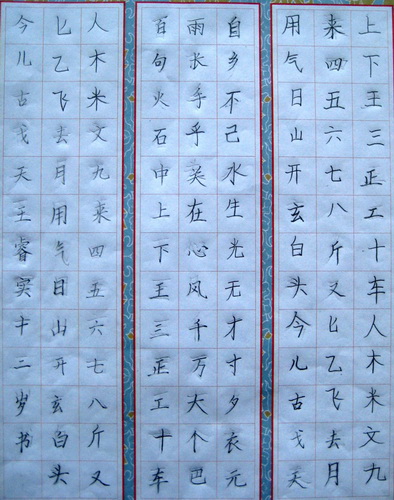 上下王三正工十车人木米文九
来四五六七八斤又匕乙飞去月
用气日山开玄白头今儿古戈天
自乡不己水生光无才寸夕衣元
雨长手乎在心风千万大个巴
百句火石中上下王三正工十车
人木米文九来四五六七八斤又
匕乙飞去月用气日山开玄白头
今儿古戈天王睿实十二岁书